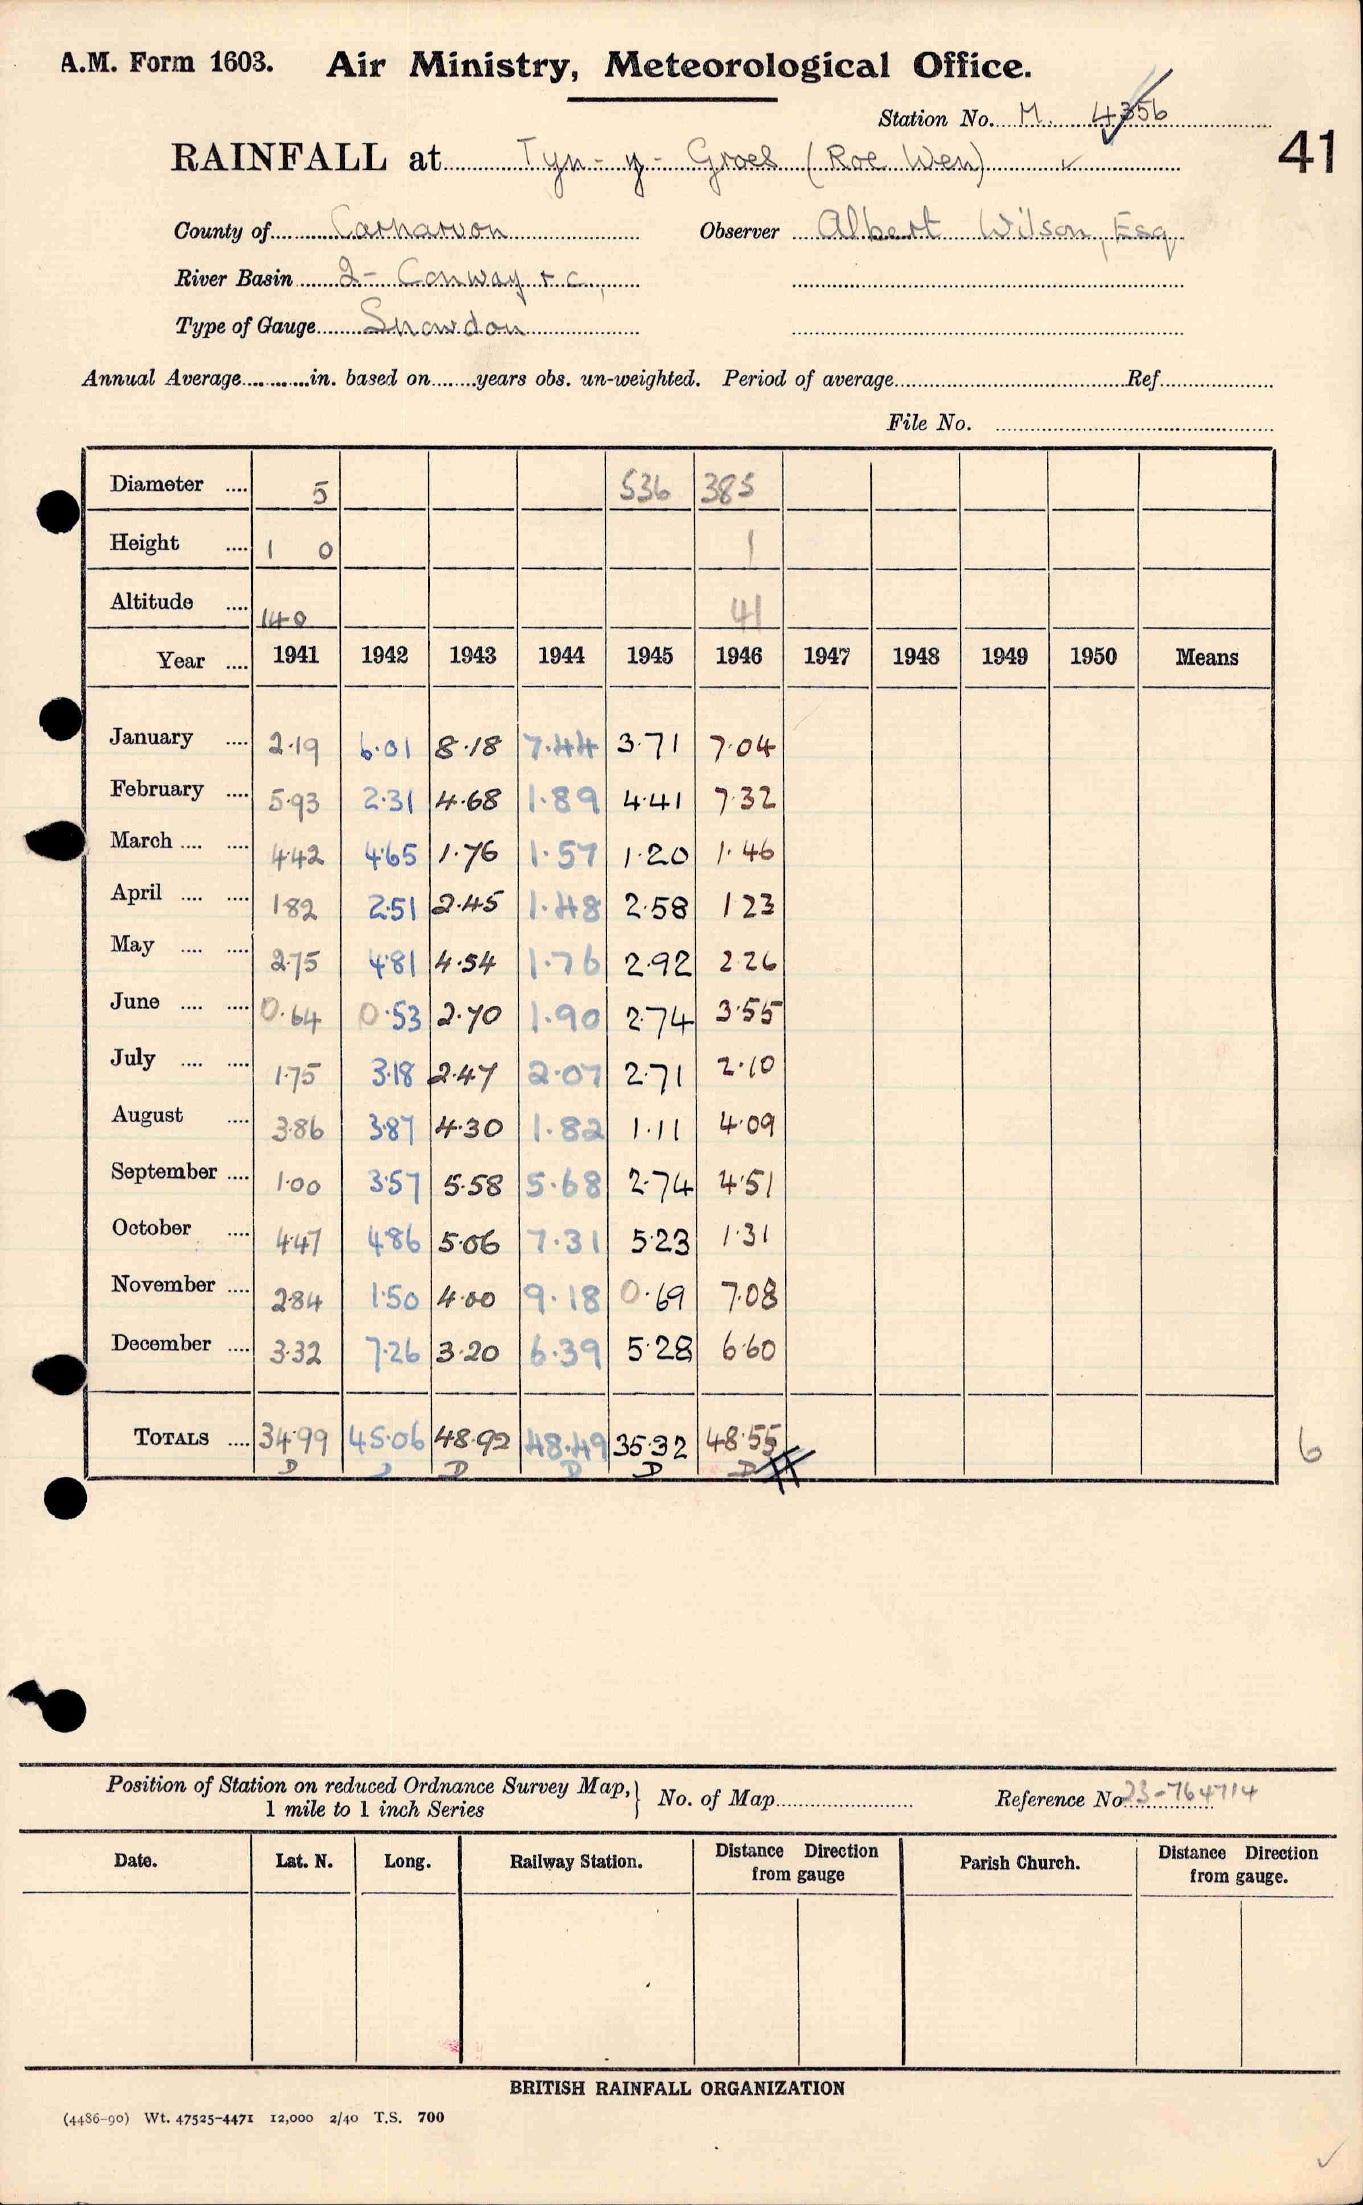 A.M. Form 1603. Air Ministry, Meteorological Office.
Station No. M. 4356
RAINFALL at Tyn-y-Groes (Roe Wen) ✓
41
County of Carnarvon Observer Albert Wilson, Esq
River Basin 2- Conway &c,
Type of Gauge Snowdon
Annual Average in. based on years obs. un-weighted. Period of average Ref.
File No.
Diameter 5 536 385
Height 1 0 1
Altitude 140 41
Year 1941 1942 1943 1944 1945 1946 1947 1948 1949 1950 Means
January 2.19 6.01 8.18 7.44 3.71 7.04
February 5.93 2.31 4.68 1.89 4.41 7.32
March 4.42 4.65 1.76 1.57 1.20 1.46
April 1.82 2.51 2.45 1.48 2.58 1.23
May 2.75 4.81 4.54 1.76 2.92 2.26
June 0.64 0.53 2.70 1.90 2.74 3.55
July 1.75 3.18 2.47 2.07 2.71 2.10
August 3.86 3.87 4.30 1.82 1.11 4.09
September 1.00 3.57 5.58 5.68 2.74 4.51
October 4.47 4.86 5.06 7.31 5.23 1.31
November 2.84 1.50 4.00 9.18 0.69 7.08
December 3.32 7.26 3.20 6.39 5.28 6.60
TOTALS 34.99 45.06 48.92 48.49 35.32 48.55 6
D D D D D D
Position of Station on reduced Ordnance Survey Map, No. of Map Reference No 23-764714
1 mile to 1 inch Series
Date. Lat. N. Long. Railway Station. Distance from gauge Direction Parish Church. Distance Direction from gauge.
BRITISH RAINFALL ORGANIZATION
(4486-90) Wt. 47525-4471 12,000 2/40 T.S. 700